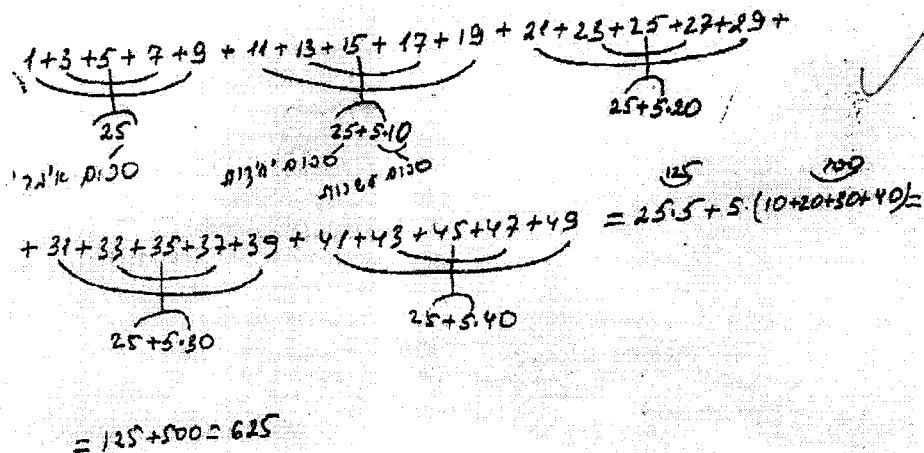 1+3+5+7+9 + 11+13+15+17+19 + 21+23+25+27+29+
25
25+5·10
25+5·20
סכום
סכום יחידות
סכום עשרות
+ 31+33+35+37+39 + 41+43+45+47+49
25+5·30
25+5·40
125
100
= 25·5 + 5·(10+20+30+40)=
= 125+500=625